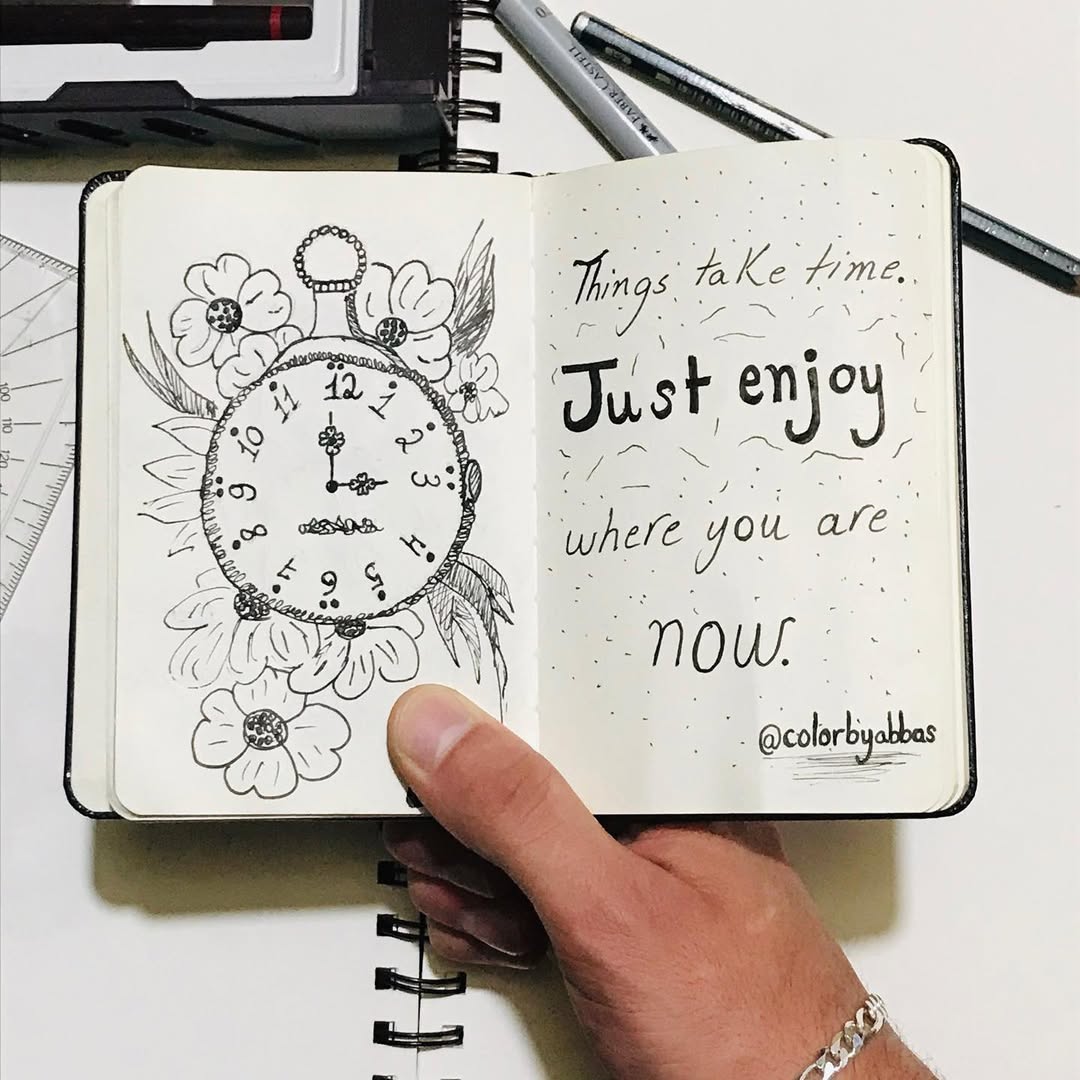 FABER CASTELL
12
1
2
3
4
5
6
7
8
9
10
11
Things take time.
Just enjoy
where you are
now.
@colorbyabbas
100
110
120